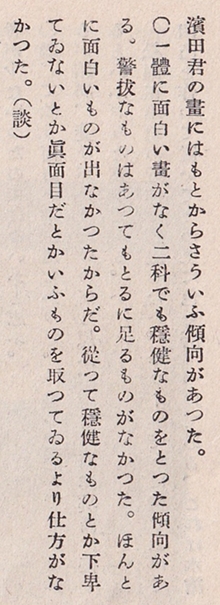 濱田君の畫にはもとからさういふ傾向があつた。
〇一體に面白い畫がなく二科でも穩健なものをとつた傾向があ
る。警拔なものはあつてもとるに足るものがなかつた。ほんと
に面白いものが出なかつたからだ。從つて穩健なものとか下卑
てゐないとか眞面目だとかいふものを取つてゐるより仕方がな
かつた。（談）